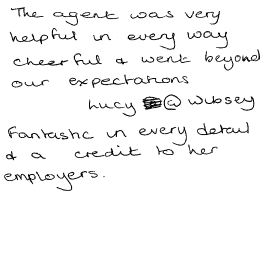 The agent was very
helpful in every way
cheerful & went beyond
our expectations
Lucy @ Wibsey
Fantastic in every detail
& a credit to her
employers.